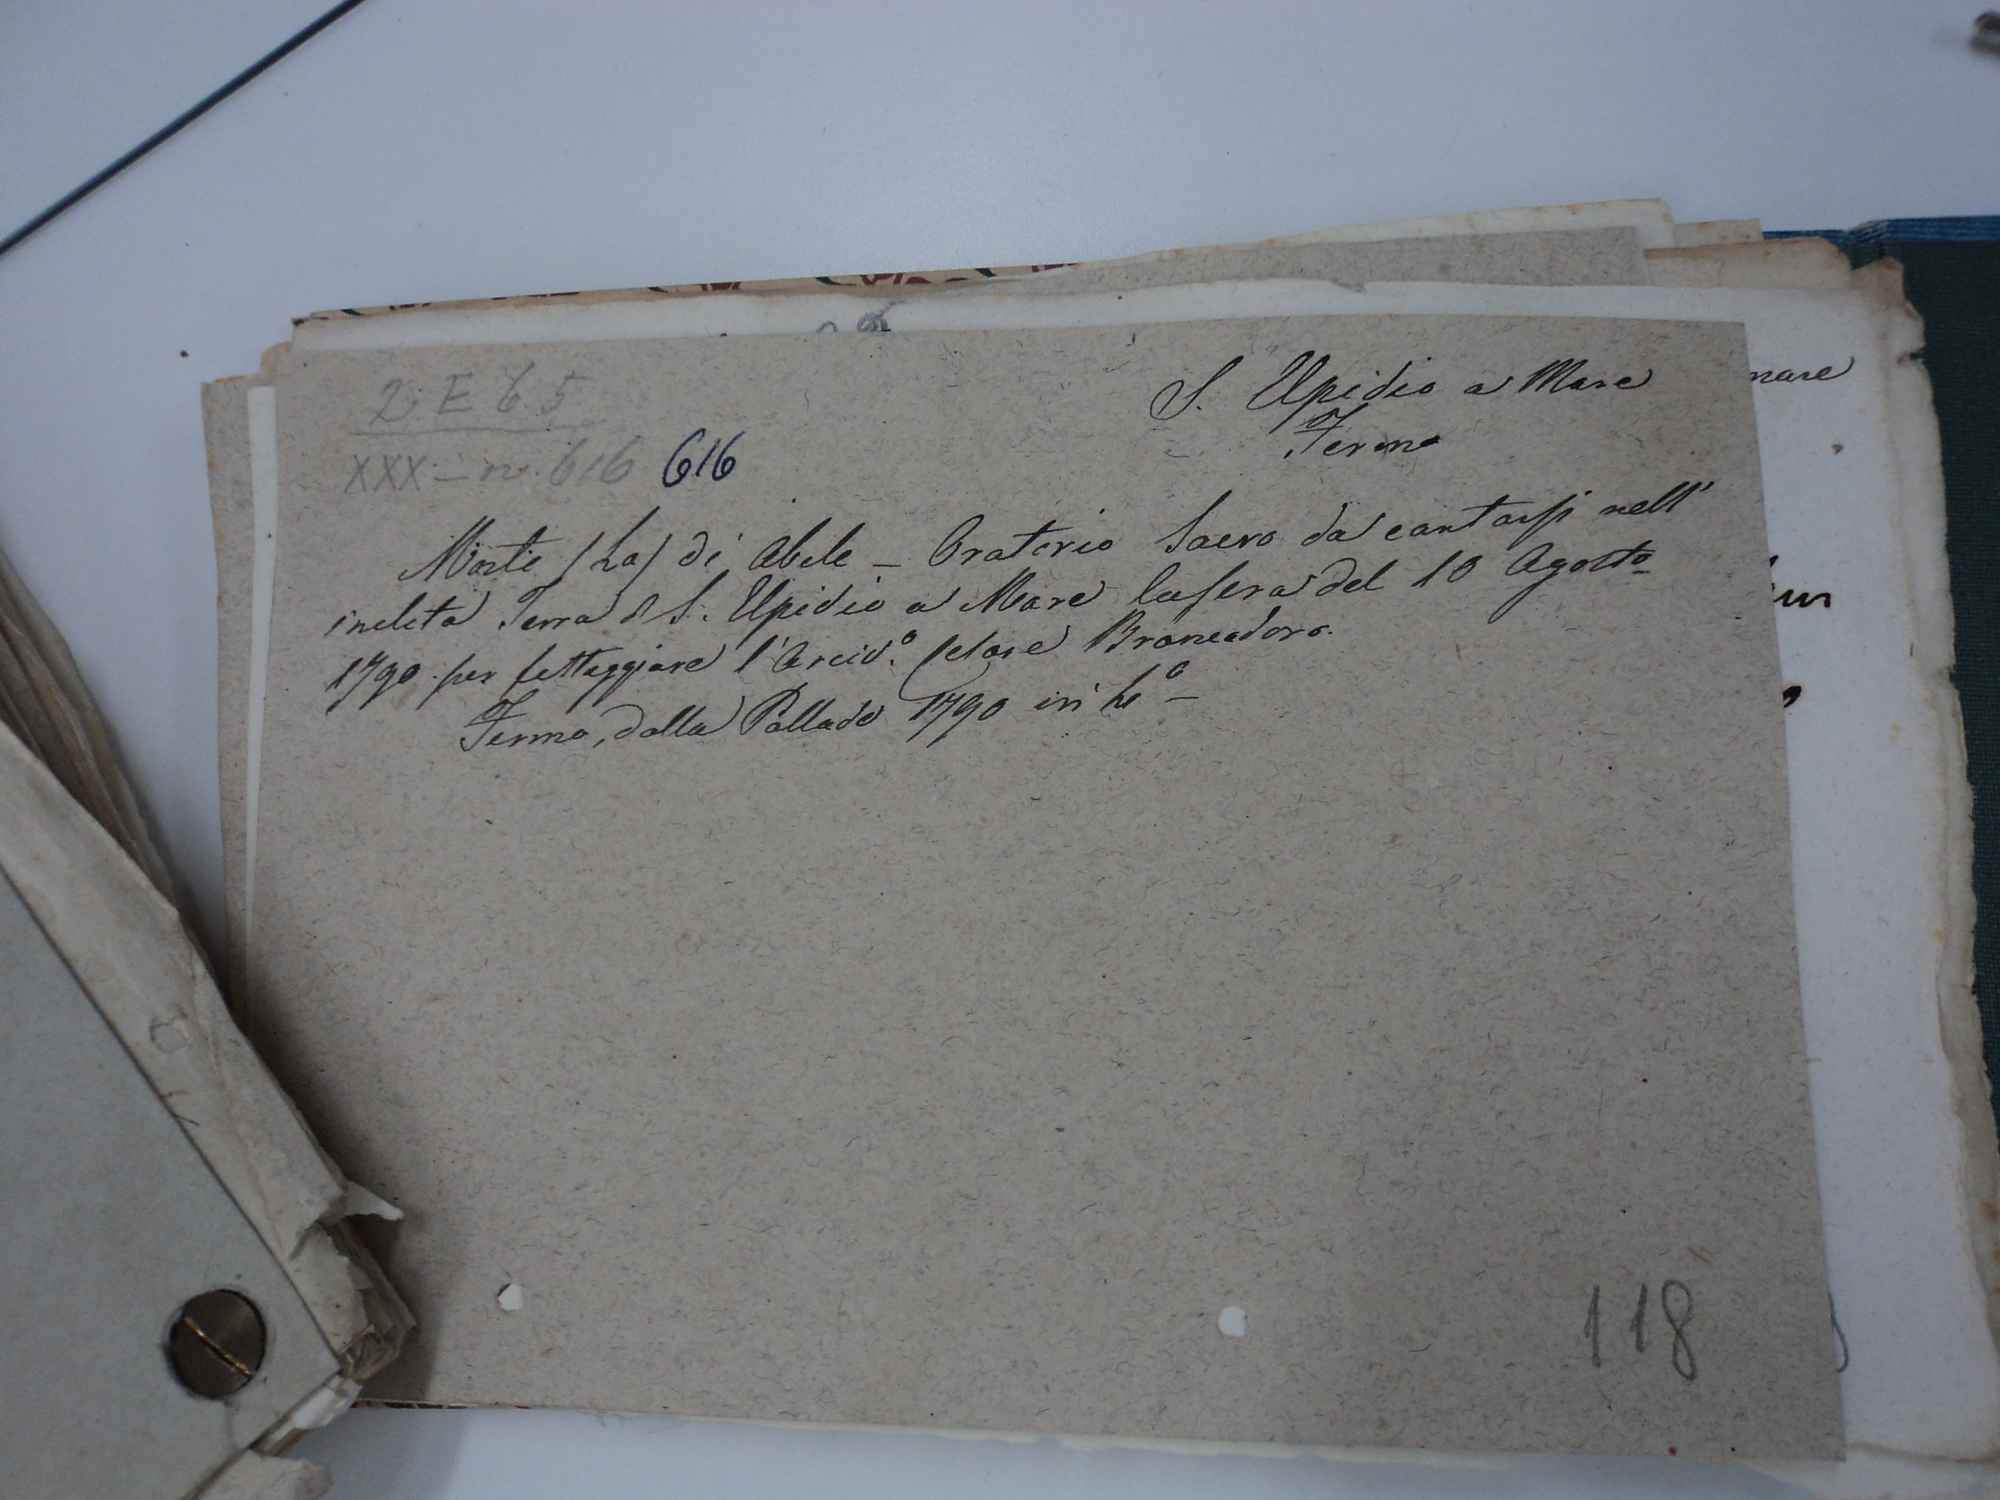 2. E 6. 5
XXX - n. 616 616
S. Elpidio a Mare
Fermo
mare
Morte (La) di Abele - Oratorio Sacro da cantarsi nell'
inclita Terra di S. Elpidio a Mare la sera del 10 Agosto
1790 per festeggiare l'Arciv.º Cesare Brancadoro.
Fermo, dalla Pallade 1790 in 4º -
118